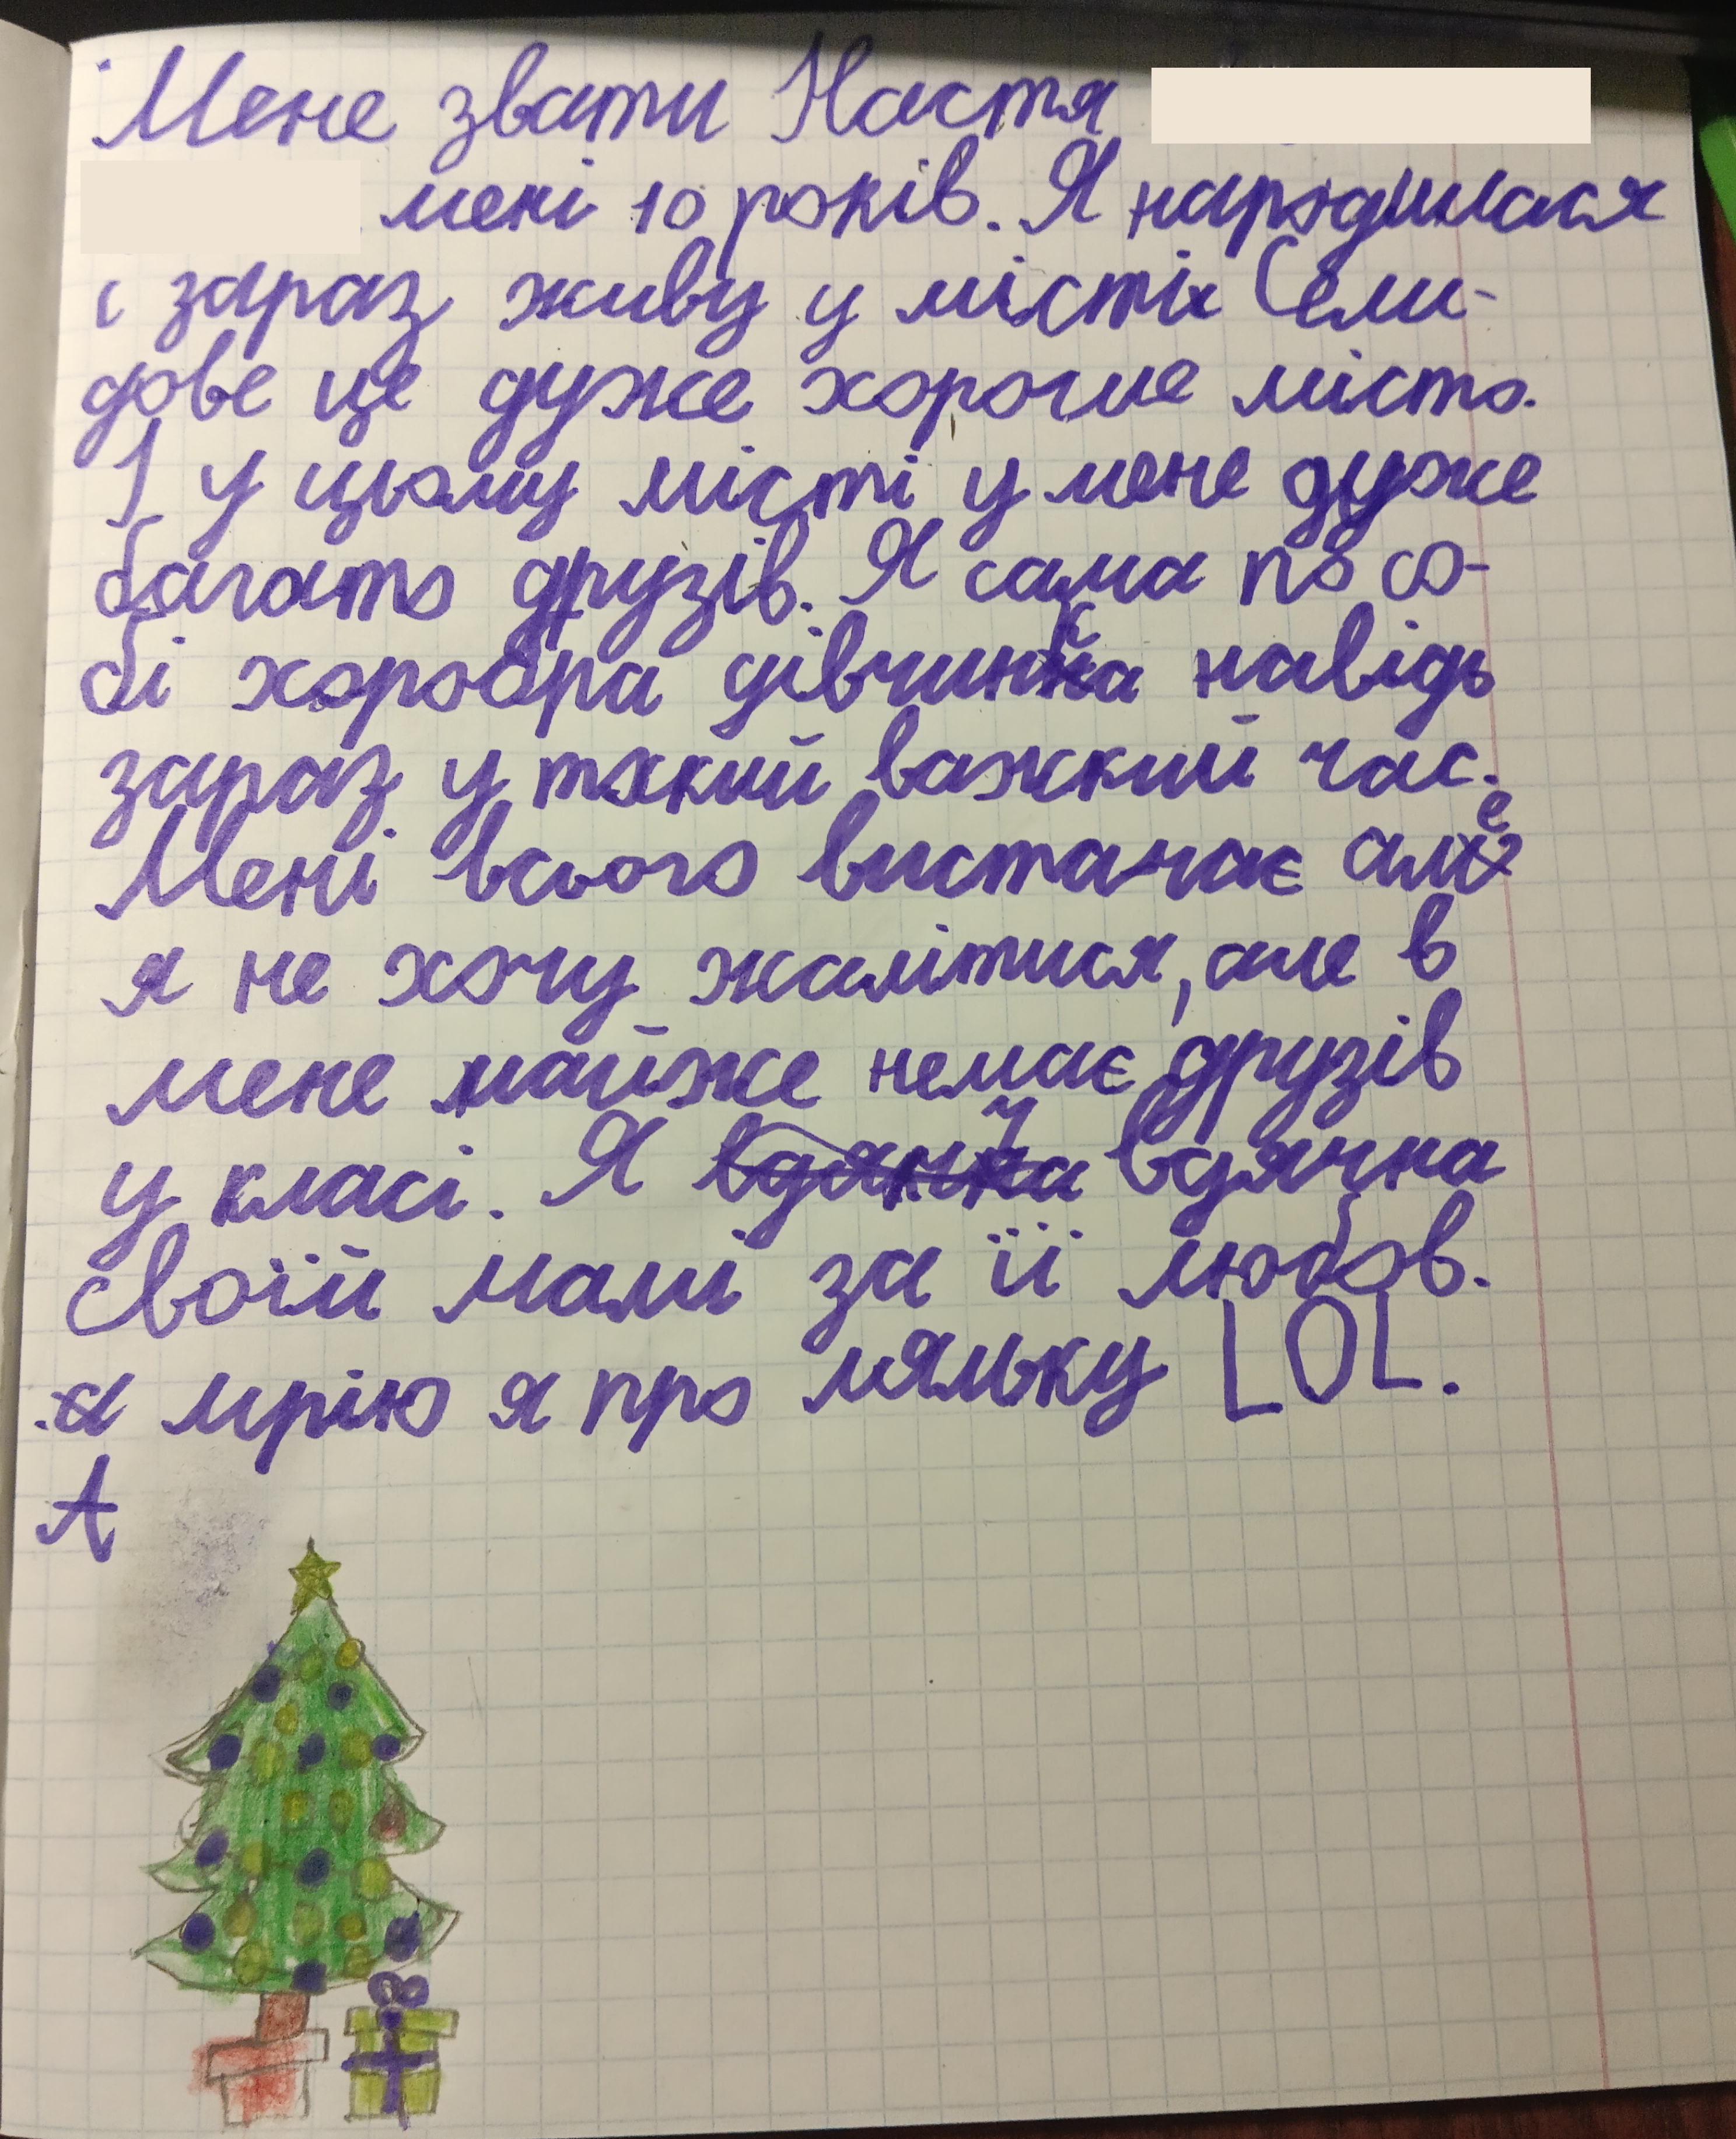 Мене звати Настя
мені 10 років. Я народилася
і зараз живу у місті Сели-
дове це дуже хороше місто.
І у цьому місті у мене дуже
багато друзів. Я сама по со-
бі хоробра дівчинка навідь
зараз у такий важкий час.
Мені всього вистачає але
я не хочу жалітися, але в
мене майже немає друзів
у класі. Я вдячна
своїй мамі за її любов.
а мрію я про ляльку LOL.
А